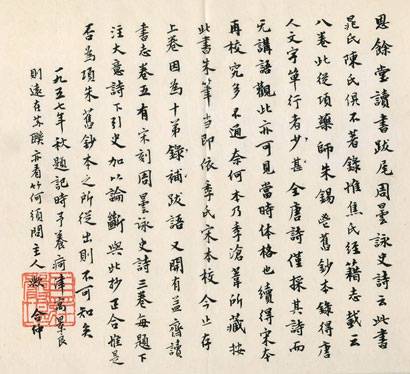 思餘堂讀書跋尾周曇詠史詩云此書
晁氏陳氏俱不著錄惟焦氏經籍志載云
八卷此從項藥師朱錫鬯舊鈔本錄得唐
人文字單行者少甚全唐詩僅採其詩而
无講語觀此亦可見當時体格也續得宋本
再校究多不通奈何本乃季滄葦所藏按
此書朱筆当即依季氏宋本校今止存
上卷因為十弟錄補跋語又開有益齋讀
書志卷五有宋刻周曇詠史詩三卷每題下
注大意詩下引史加以論斷與此抄正合惟是
否為項朱舊鈔本之所從出則不可知矣
一九五七年秋題記時予養疴
則遠在苏聯亦看竹何須問主人歟